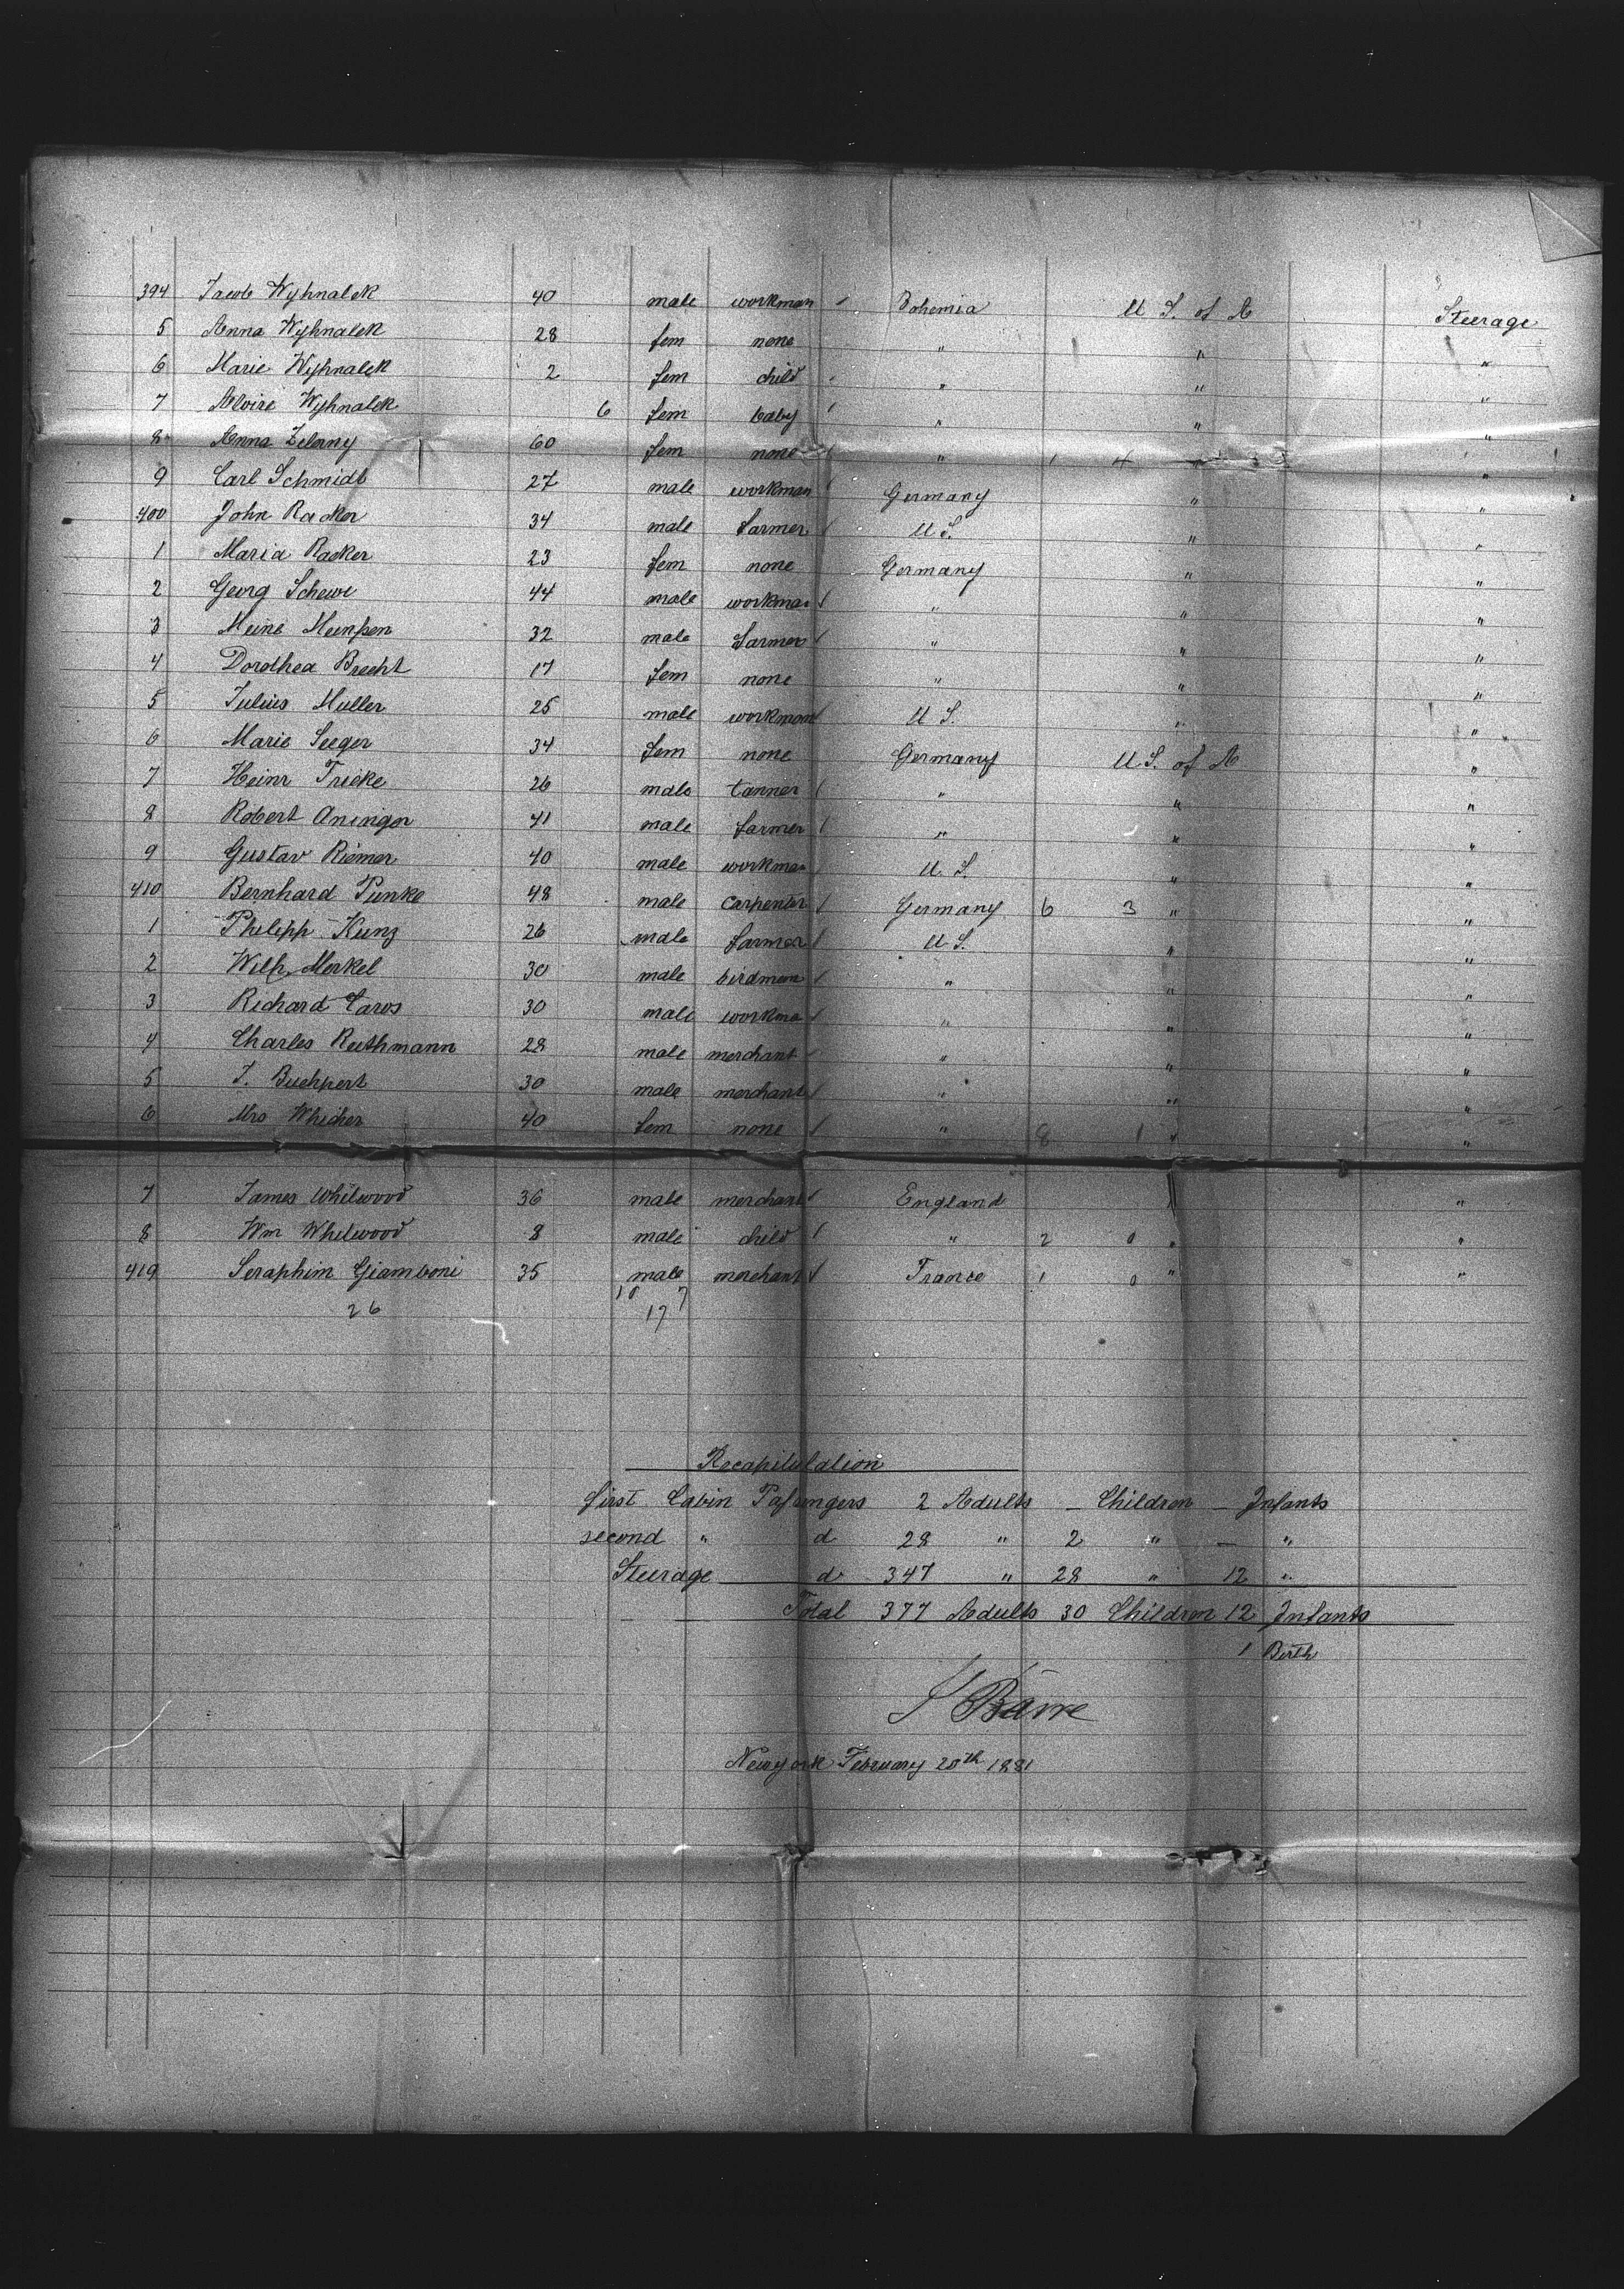 394 Jacob Wyhnalek 40 male workman Bohemia U S. of A Steerage
5 Anna Wyhnalek 28 fem none " " "
6 Marie Wyhnalek 2 fem child " " "
7 Wyhnalek 6 fem baby " " "
8 Anna Zelany 60 fem none " 1 4 "
9 Carl Schmidt 27 male workman Germany " "
400 John Racker 34 male farmer U S. " "
1 Maria Racker 23 fem none Germany " "
2 Georg Schewe 44 male workman " " "
3 Meine 32 male farmer " " "
4 Dorothea Brecht 17 fem none " " "
5 Julius Muller 25 male workman U S. " "
6 Marie Seeger 34 fem none Germany U S. of A "
7 Heinr Fricke 26 male tanner " " "
8 Robert Aninger 41 male farmer " " "
9 Gustav Riemer 40 male workman U. S. " "
410 Bernhard Punke 48 male carpenter Germany 6 3 " "
1 Philipp Kunz 26 male farmer U S. " "
2 Wilh. Merkel 30 male birdman " " "
3 Richard 30 male workma " " "
4 Charles Ruthmann 28 male merchant " " "
5 J. 30 male merchant " " "
6 Mrs Whicher 40 fem none " 8 1 " "
7 James Whilwood 36 male merchant England "
8 Wm Whilwood 8 male child " 2 0 " "
419 Seraphim Giamboni 35 male merchant France 1 0 " "
26 10 7
17
Recapitulation
first Cabin Passengers 2 Adults – Children – Infants
second " d 28 " 2 " – "
Steerage d 347 " 28 " 12 "
Total 377 Adults 30 Children 12 Infants
1 Birth
Barre
New york February 20th 1881